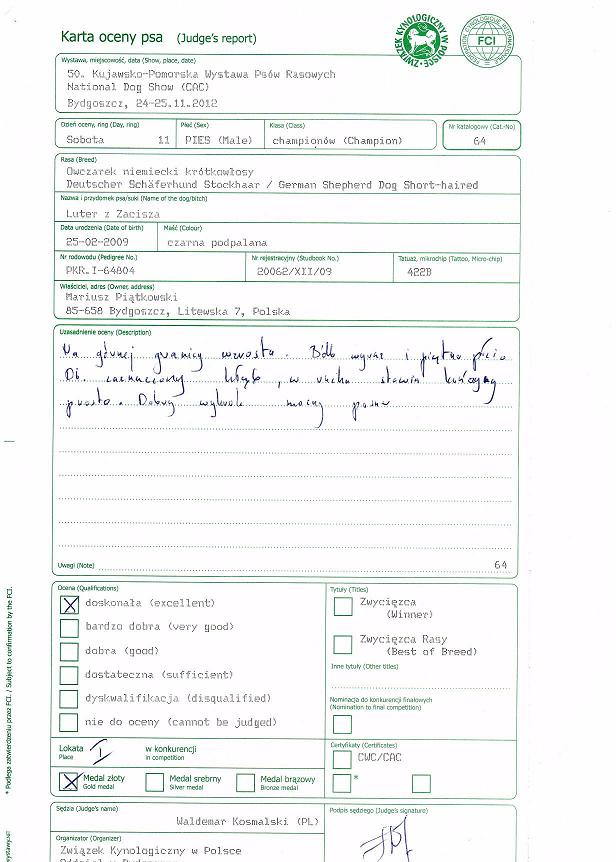 Karta oceny psa (Judge's report)
ZWIĄZEK KYNOLOGICZNY W POLSCE
FEDERATION CYNOLOGIQUE INTERNATIONALE
FCI
Wystawa, miejscowość, data (Show, place, date)
50. Kujawsko-Pomorska Wystawa Psów Rasowych
National Dog Show (CAC)
Bydgoszcz, 24-25.11.2012
Dzień oceny, ring (Day, ring) Płeć (Sex) Klasa (Class) Nr katalogowy (Cat.-No)
Sobota 11 PIES (Male) championów (Champion) 64
Rasa (Breed)
Owczarek niemiecki krótkowłosy
Deutscher Schäferhund Stockhaar / German Shepherd Dog Short-haired
Nazwa i przydomek psa/suki (Name of the dog/bitch)
Luter z Zacisza
Data urodzenia (Date of birth) Maść (Colour)
25-02-2009 czarna podpalana
Nr rodowodu (Pedigree No.) Nr rejestracyjny (Studbook No.) Tatuaż, mikrochip (Tattoo, Micro-chip)
PKR.I-64804 20062/XII/09 422B
Właściciel, adres (Owner, address)
Mariusz Piątkowski
85-658 Bydgoszcz, Litewska 7, Polska
Uzasadnienie oceny (Description)
Na górnej granicy wzrostu. wyraz i płci
zaznaczony kłąb, w ruchu stawia kończyny
prosto. Dobry wykrok mocny
Uwagi (Note) 64
Ocena (Qualifications) Tytuły (Titles)
X doskonała (excellent) Zwycięzca
(Winner)
bardzo dobra (very good)
dobra (good) Zwycięzca Rasy
(Best of Breed)
dostateczna (sufficient) Inne tytuły (Other titles)
dyskwalifikacja (disqualified) Nominacja do konkurencji finałowych
(Nomination to final competition)
nie do oceny (cannot be judged)
Lokata I w konkurencji Certyfikaty (Certificates)
Place in competition CWC/CAC
X Medal złoty Medal srebrny Medal brązowy *
Gold medal Silver medal Bronze medal
Sędzia (Judge's name) Podpis sędziego (Judge's signature)
Waldemar Kosmalski (PL)
Organizator (Organizer)
Związek Kynologiczny w Polsce
* Podlega zatwierdzeniu przez FCI. / Subject to confirmation by the FCI.